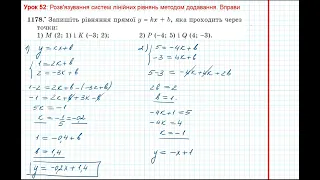 Урок 52: Розв'язування систем лінійних рівнянь методом додавання. Вправи
1178.° Запишіть рівняння прямої y = kx + b, яка проходить через
точки:
1) M (2; 1) і K (−3; 2); 2) P (−4; 5) і Q (4; −3).
y = kx + b
1 = 2k + b
2 = −3k + b
1 − 2 = 2k + b − (−3k + b)
−1 = 2k + b + 3k − b
5k = −1
k = −1/5 = −0,2
1 = −0,4 + b
b = 1,4
y = −0,2x + 1,4
5 = −4k + b
−3 = 4k + b
5 − 3 = −4k + 4k + 2b
2b = 2
b = 1
−4k + 1 = 5
−4k = 4
k = −1
y = −x + 1